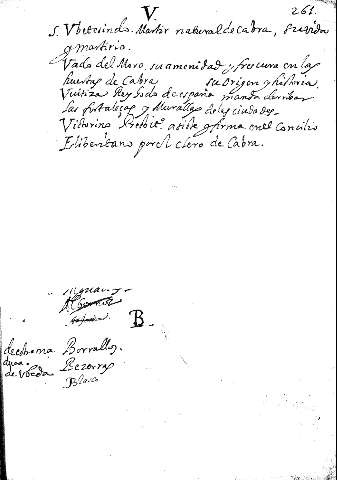 261.
V.
S. Vbecsindo. Martir natural de Cabra, su vida
y martirio.
Vado del Moro, su amenidad y frescura en las
huertas de Cabra su origen y historia.
Vuitiza Rey Godo de españa manda derribar
las fortalezas y Murallas de las ciudades.
Victorino Presbit.º asiste y firma en el Concilio
Eliberitano por el clero de Cabra.
B.
Borrallo.
Bezerra
de Vbeda
Blanco